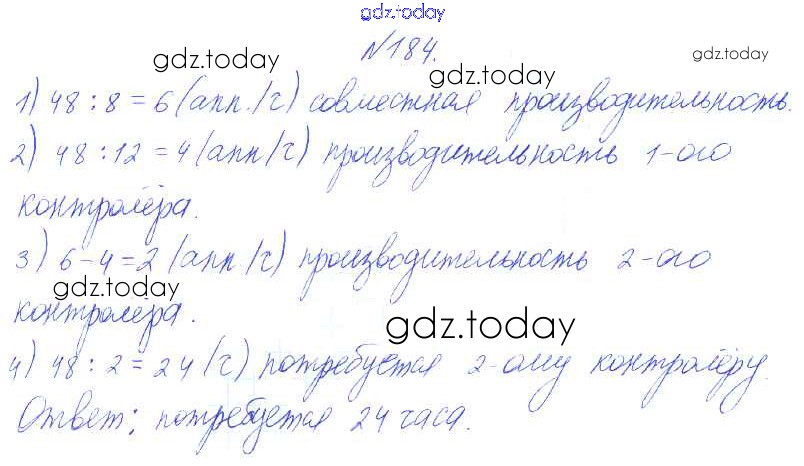 gdz.today
№184.
gdz.today
gdz.today
gdz.today
1) 48 : 8 = 6 (апп./ч) совместная производительность.
2) 48 : 12 = 4 (апп/ч) производительность 1-ого
контролёра.
3) 6 - 4 = 2 (апп/ч) производительность 2-ого
gdz.today
контролёра.
gdz.today
4) 48 : 2 = 24 (ч) потребуется 2-ому контролёру.
Ответ: потребуется 24 часа.